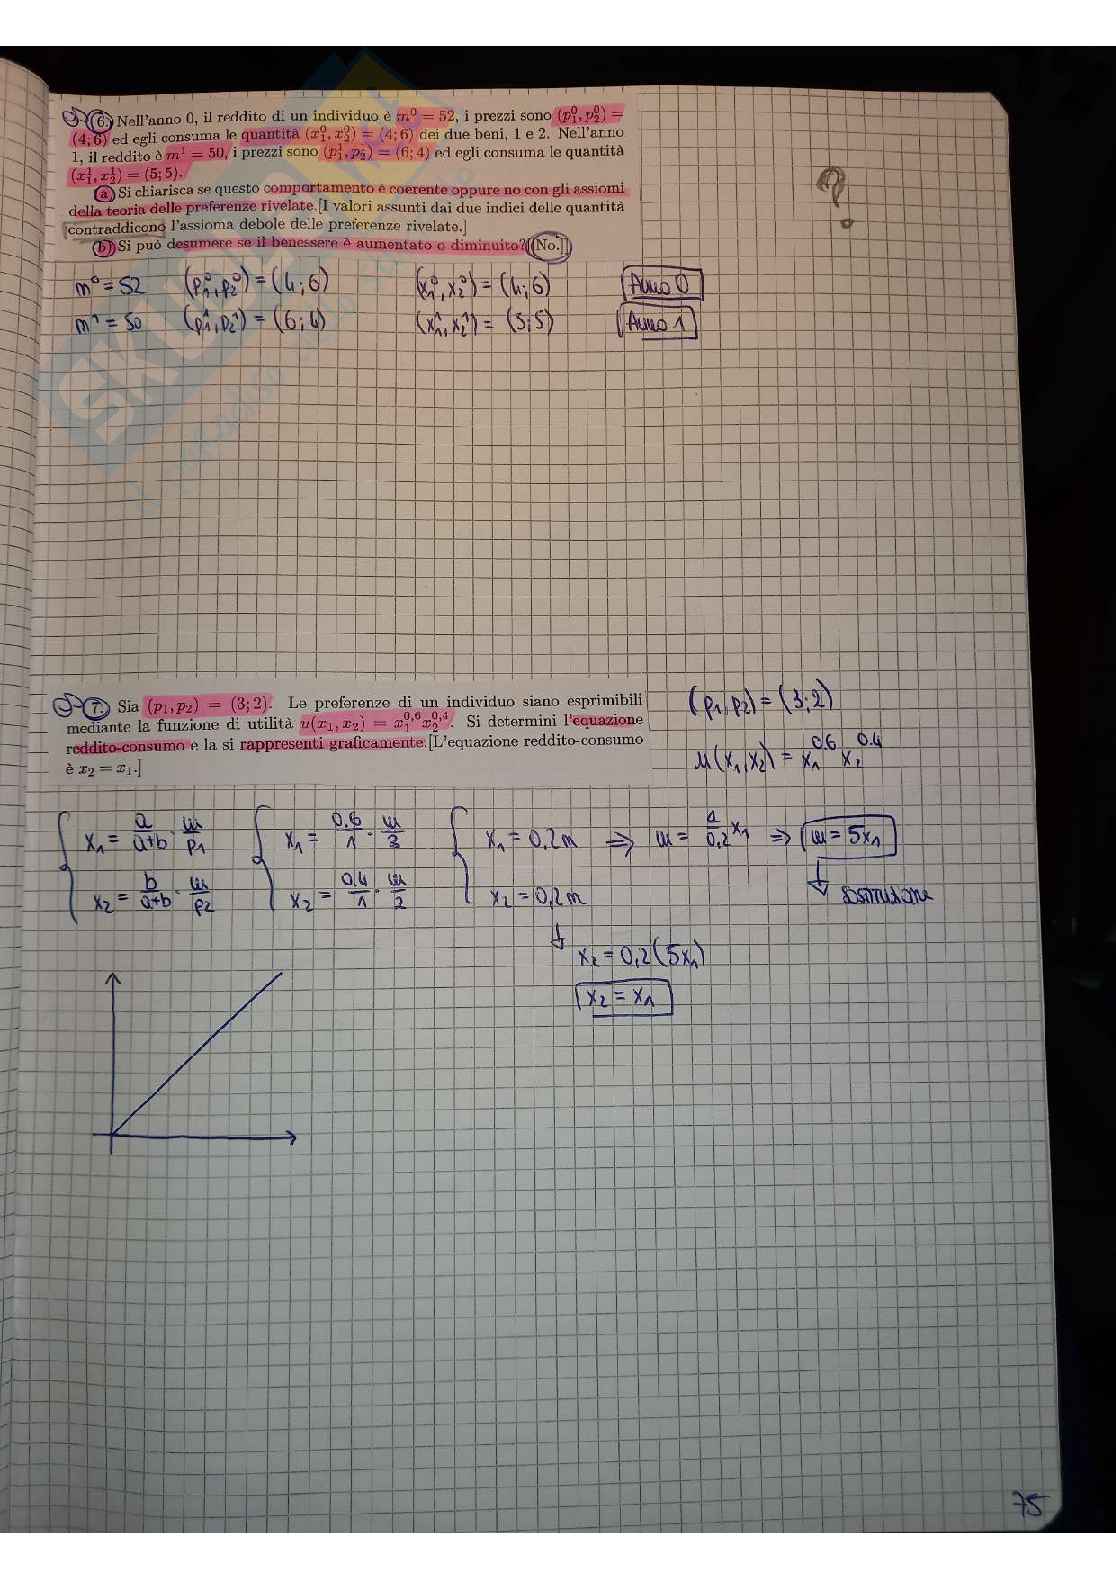 6. Nell'anno 0, il reddito di un individuo è m⁰ = 52, i prezzi sono (p₁⁰, p₂⁰) =
(4; 6) ed egli consuma le quantità (x₁⁰, x₂⁰) = (4; 6) dei due beni, 1 e 2. Nell'anno
1, il reddito è m¹ = 50, i prezzi sono (p₁¹, p₂¹) = (6; 4) ed egli consuma le quantità
(x₁¹, x₂¹) = (5; 5).
(a) Si chiarisca se questo comportamento è coerente oppure no con gli assiomi
della teoria delle preferenze rivelate.[I valori assunti dai due indici delle quantità
contraddicono l'assioma debole delle preferenze rivelate.]
(b) Si può desumere se il benessere è aumentato o diminuito?[No.]
?
m⁰ = 52 (p₁⁰, p₂⁰) = (4; 6) (x₁⁰, x₂⁰) = (4; 6) Anno 0
m¹ = 50 (p₁¹, p₂¹) = (6; 4) (x₁¹, x₂¹) = (5; 5) Anno 1
SKUOLA
7. Sia (p₁, p₂) = (3; 2). Le preferenze di un individuo siano esprimibili
mediante la funzione di utilità u(x₁, x₂) = x₁^0,6 x₂^0,4. Si determini l'equazione
reddito-consumo e la si rappresenti graficamente.[L'equazione reddito-consumo
è x₂ = x₁.]
(p₁, p₂) = (3; 2)
u(x₁, x₂) = x₁^0.6 x₂^0.4
{ x₁ = a/(a+b) · m/p₁ { x₁ = 0,6/1 · m/3 { x₁ = 0,2m ⇒ m = 1/0,2 x₁ ⇒ m = 5x₁
x₂ = b/(a+b) · m/p₂ x₂ = 0,4/1 · m/2 x₂ = 0,2m ↓ sostituzione
↓ x₂ = 0,2(5x₁)
x₂ = x₁
75